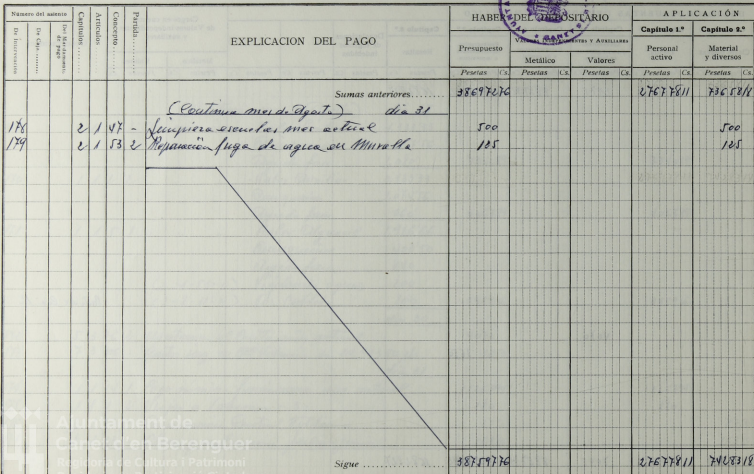 Número del asiento
De Intervención
De Caja
Del Mandamiento de pago
Capítulos
Artículos
Concepto
Partida
EXPLICACION DEL PAGO
HABER DEL DEPOSITARIO
Presupuesto
VALORES INDEPENDIENTES Y AUXILIARES
Metálico
Valores
APLICACIÓN
Capítulo 1.º
Capítulo 2.º
Personal activo
Material y diversos
Pesetas Cs. Pesetas Cs. Pesetas Cs. Pesetas Cs. Pesetas Cs.
Sumas anteriores 386972 76 276778 11 73658 18
(Continua mes de Agosto) día 31
178 2 1 47 - Limpieza escuelas mes actual 500 500
179 2 1 53 2 Reparación fuga de agua en Muralla 125 125
Sigue 387597 76 276778 11 74283 18
Ajuntament de
Canet d'en Berenguer
Regidoria de Cultura i Patrimoni